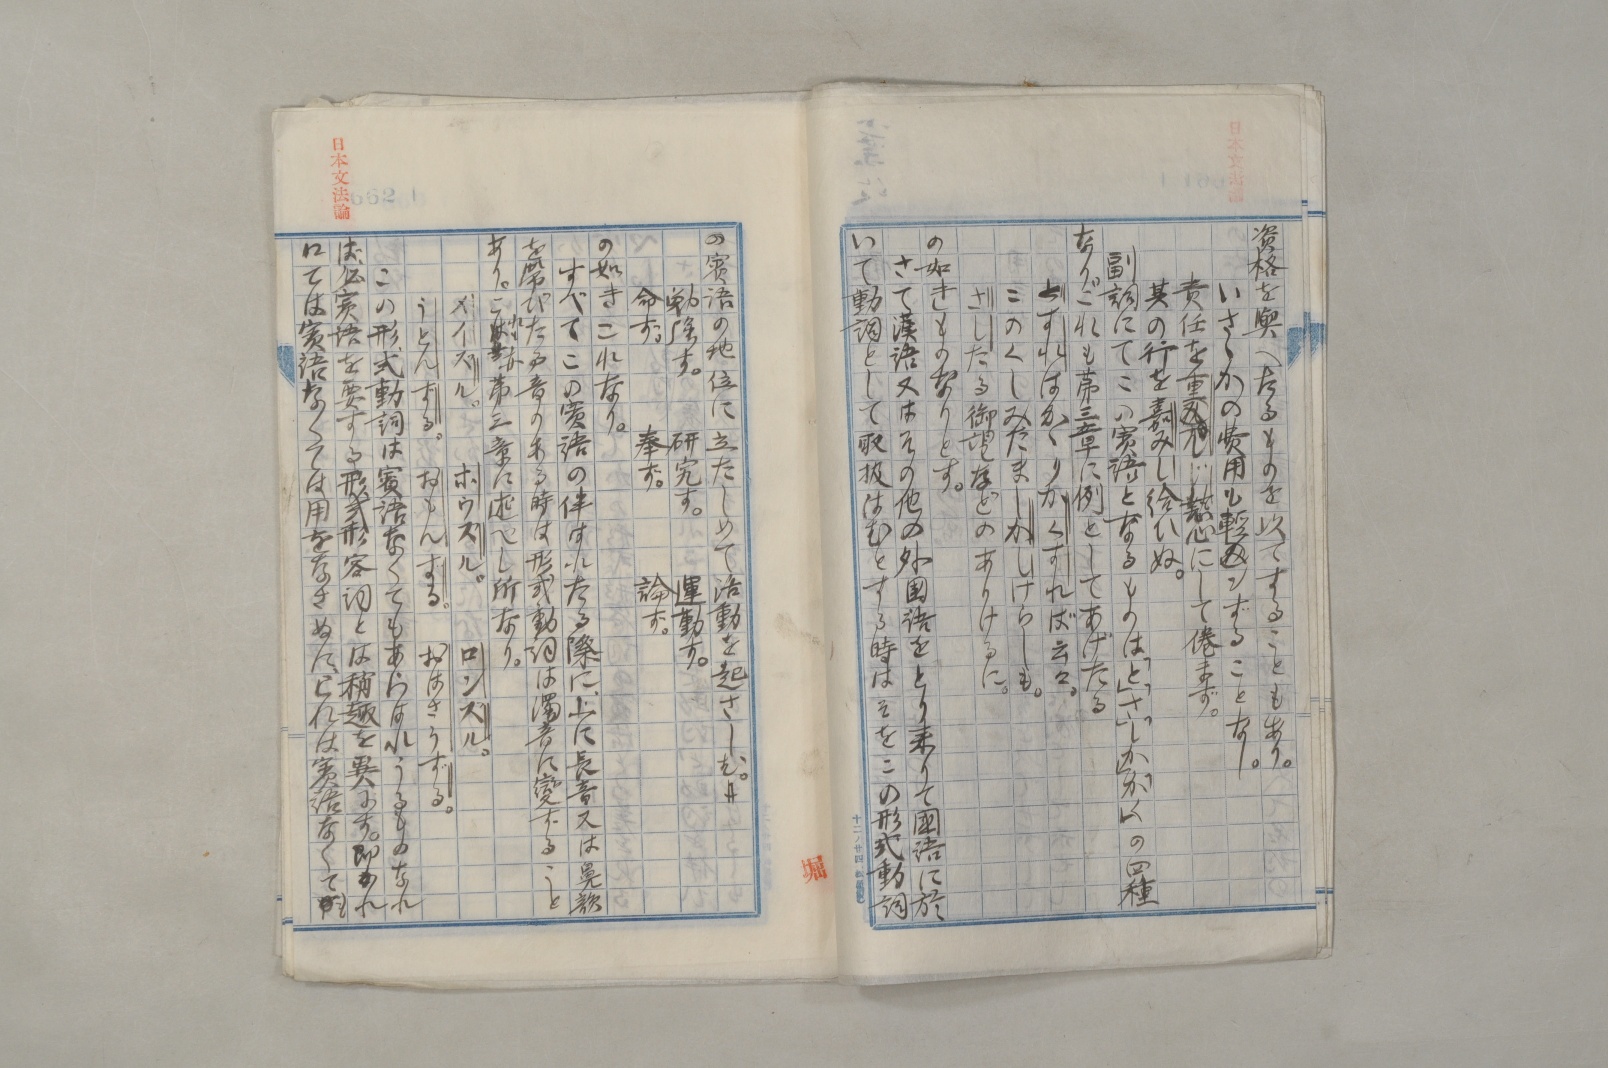 資格を與へたるものを以てすることもあり。
いさゝかの費用も輕ンずることなし。
責任を重んじ、熱心にして倦まず。
其の行を嘉みし給ひぬ。
副詞にてこの賓語となるものは「と」「さ」「しか」「かく」の四種
なり。これも第三章に例としてあげたる
とすればかゝりかくすれば云々。
このくしみたましかしけらしも。
さしたる御望などのありけるに。
の如きものなりとす。
さて漢語又はその他の外国語をとり来りて国語に於
いて動詞として取扱はむとする時はそをこの形式動詞
の賓語の地位に立たしめて活動を起さしむ。
掃除す。 研究す。 運動す。
命ず。 奉ず。 論ず。
の如きこれなり。
すべてこの賓語の伴はれたる際に、上に長音又は鼻歆
を帯びたる音のある時は形式動詞は濁音に變ずること
あり。こは亦第三章に述べし所なり。
メイズル。 ホウズル。 ロンズル。
うとんずる。 おもんずる。 おはさうずる。
この形式動詞は賓語なくてもあらはれうるものなれ
ば、必賓語を要する形式形容詞とは稍趣を異にす。即かれ
にては賓語なくては用をなさぬに、これは賓語なくても
日本文法論
日本文法論
662
堀